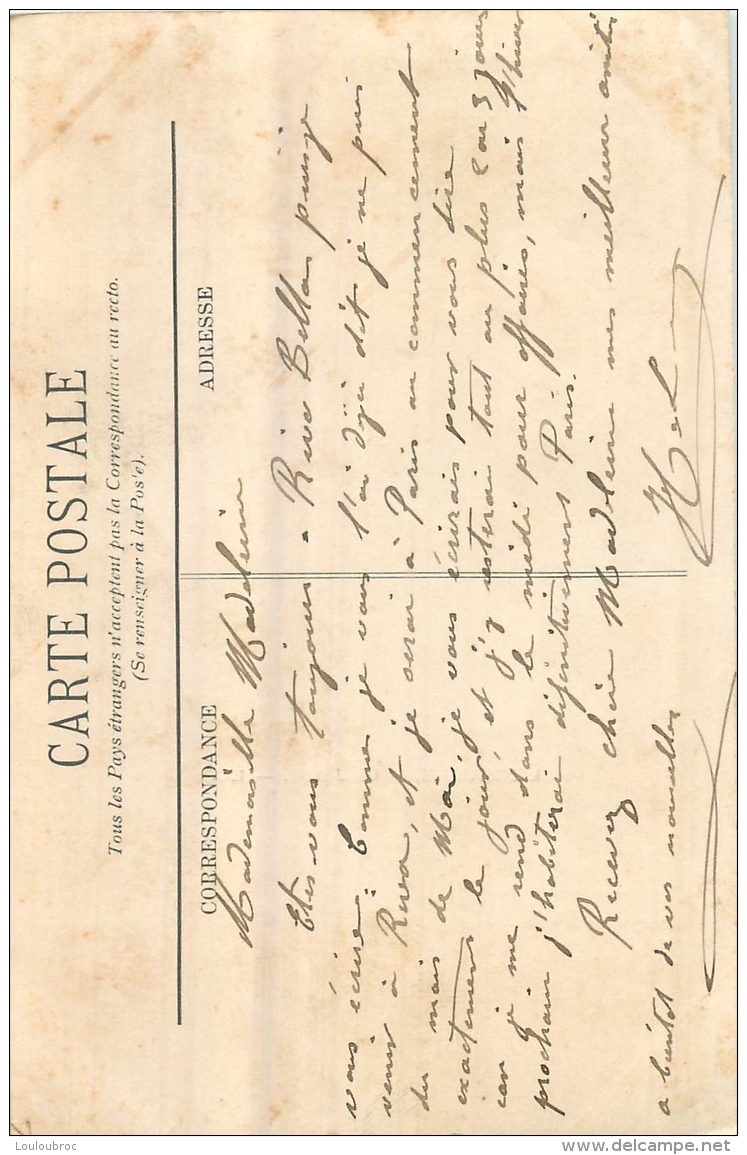 CARTE POSTALE
Tous les Pays étrangers n'acceptent pas la Correspondance au recto.
(Se renseigner à la Pos'e).
CORRESPONDANCE
ADRESSE
Mademoiselle Madeleine
Etes-vous toujours a Riva Bella puisje
vous écrire. Comme je vous l'ai déjà dit je ne puis
venir à Riva, et je serai à Paris au commencement
du mois de Mai, je vous écrirais pour vous dire
exactement le jour, et j'y resterai tout au plus 2 ou 3 jours
car je me rend dans le midi pour affaires, mais l'hiver
prochain j'habiterai définitivement Paris.
Recevez chère Madeleine mes meilleures amitiés
a bientôt de vos nouvelles
Louloubroc
delcampe.net